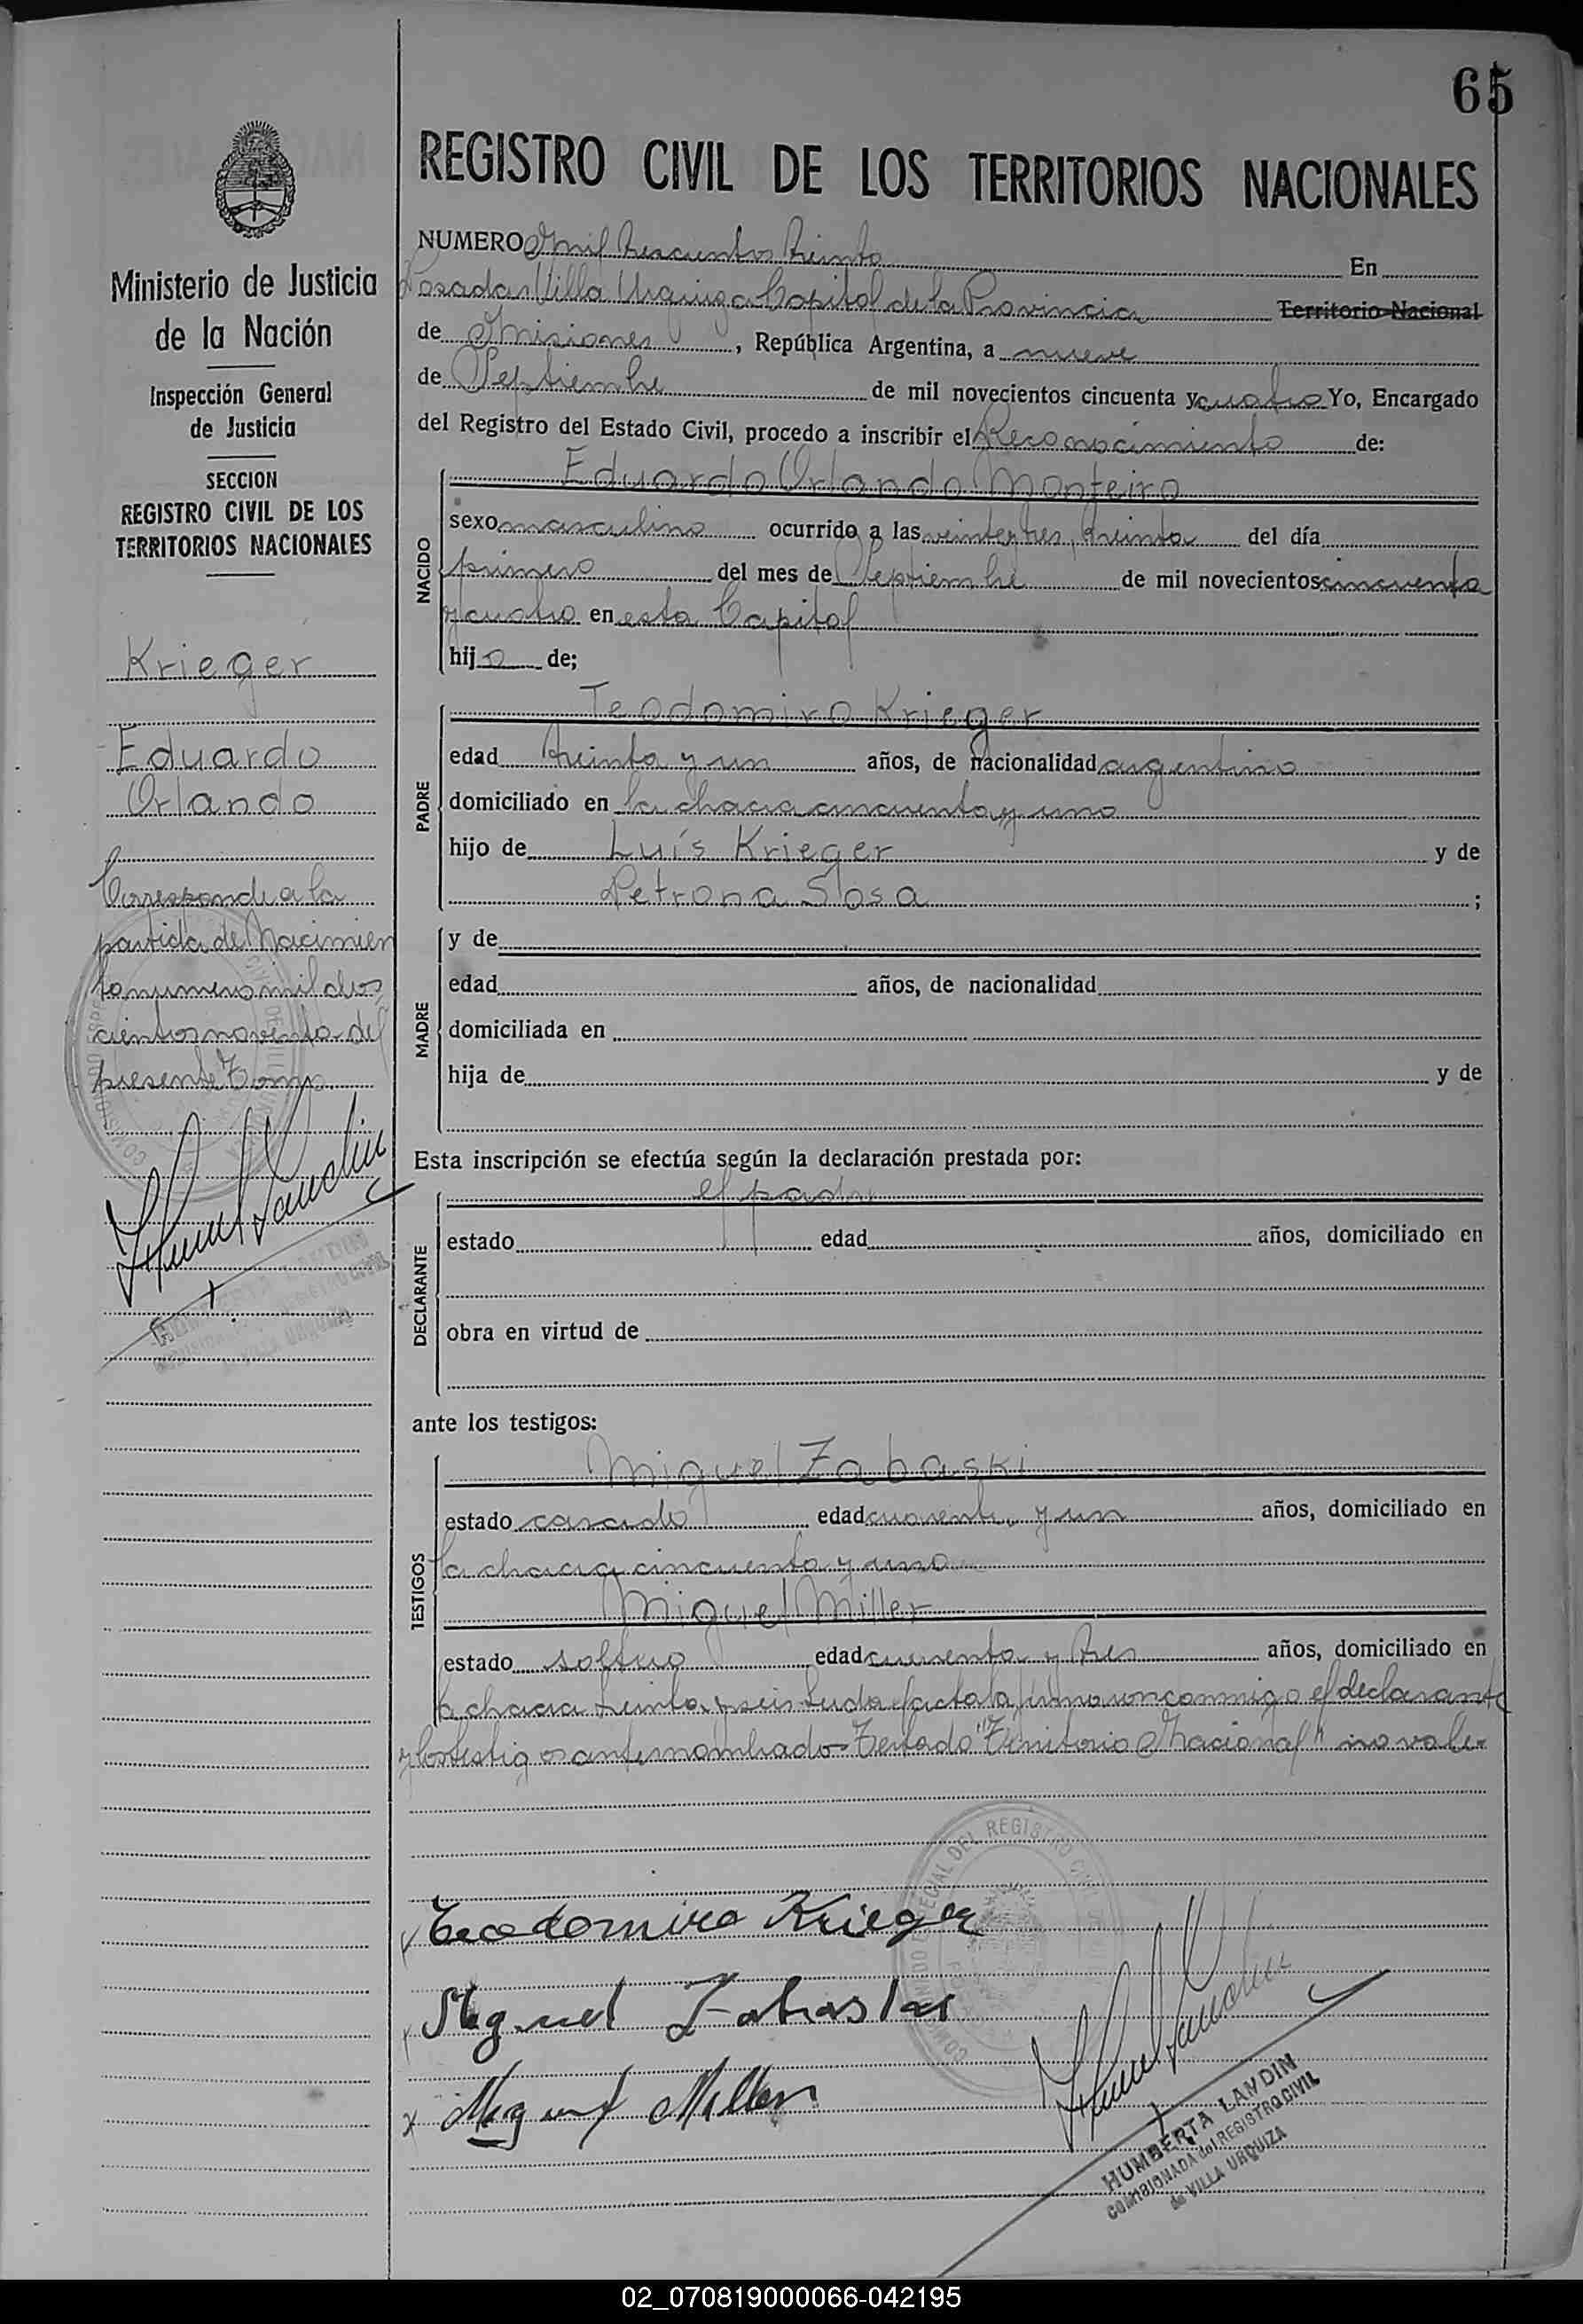 65
REGISTRO CIVIL DE LOS TERRITORIOS NACIONALES
Ministerio de Justicia
de la Nación
Inspección General
de Justicia
SECCION
REGISTRO CIVIL DE LOS
TERRITORIOS NACIONALES
Krieger
Eduardo
Orlando
Corresponde a la
partida de Nacimien
to numero mil dos
cientos noventa del
presente Tomo
NUMERO Mil trescientos treinta En
Posadas Villa Urquiza Capital de la Provincia Territorio Nacional
de Misiones, República Argentina, a nueve
de Septiembre de mil novecientos cincuenta y cuatro Yo, Encargado
del Registro del Estado Civil, procedo a inscribir el Reconocimiento de:
NACIDO
Eduardo Orlando Monteiro
sexo masculino ocurrido a las veintetres, treinta del día
primero del mes de Septiembre de mil novecientos cincuenta
y cuatro en esta Capital
hijo de;
PADRE
Teodomiro Krieger
edad treinta y un años, de nacionalidad argentino
domiciliado en la chacra cincuenta y uno
hijo de Luís Krieger y de
Petrona Sosa ;
MADRE
y de
edad años, de nacionalidad
domiciliada en
hija de y de
Esta inscripción se efectúa según la declaración prestada por:
DECLARANTE
el padre
estado edad años, domiciliado en
obra en virtud de
ante los testigos:
TESTIGOS
Miguel Zabaski
estado casado edad cuarenta y un años, domiciliado en
la chacra cincuenta y uno
Miguel Miller
estado soltero edad cuarenta y tres años, domiciliado en
la chacra treinta y seis Leida el acta la firmaron conmigo el declarante
y los testigos antes nombrado-Testado "Territorio Nacional" no vale-
Teodomiro Krieger
Miguel Zabaski
Miguel Miller
COMISIONADO ESPECIAL DEL REGISTRO CIVIL
HUMBERTA LANDIN
COMISIONADA del REGISTRO CIVIL
de VILLA URQUIZA
02_070819000066-042195